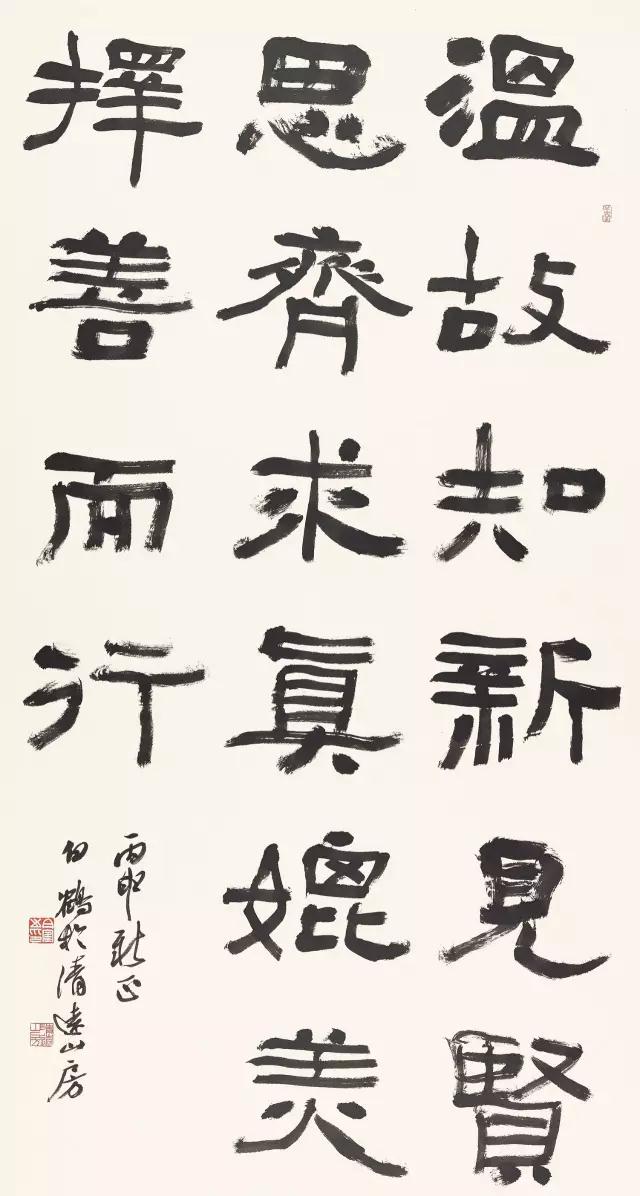 溫故知新見賢
思齊求真媲美
擇善而行
丙申新正
白鶴於清遠山房